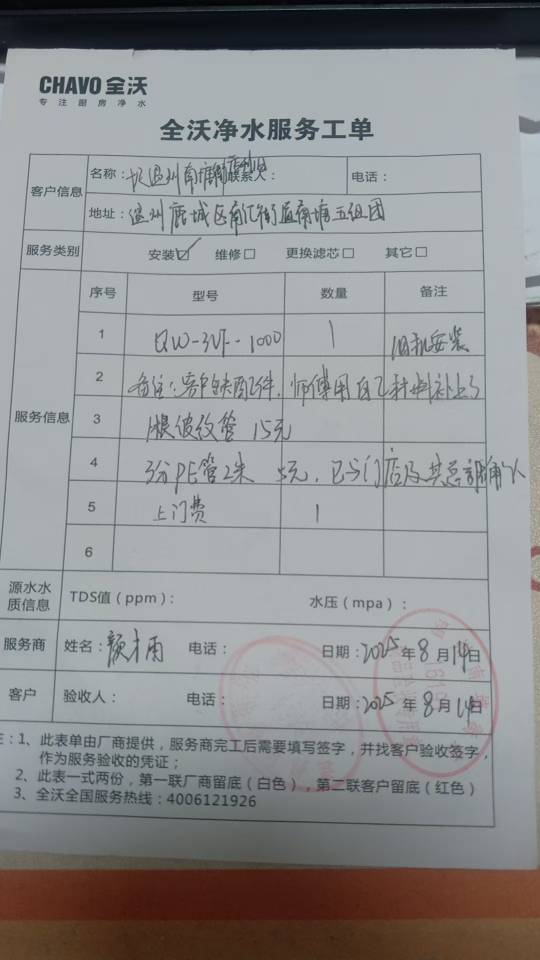 CHAVO 全沃
专注厨房净水
全沃净水服务工单
客户信息 名称：温州南塘 联系人： 电话：
地址：温州鹿城区南汇街道南塘五组团
服务类别 安装☑ 维修□ 更换滤芯□ 其它□
服务信息
序号 型号 数量 备注
1 QW-3VF-1000 1 旧机安装
2 备注：客户缺配件，师傅用自己材料补上了
3 1根波纹管 15元
4 3分PE管2米 5元，已与门店及其总部确认
5 上门费 1
6
源水水质信息 TDS值（ppm）： 水压（mpa）：
服务商 姓名： 电话： 日期：2025年8月14日
客户 验收人： 电话： 日期：2025年8月14日
：1、此表单由厂商提供，服务商完工后需要填写签字，并找客户验收签字，
作为服务验收的凭证；
2、此表一式两份，第一联厂商留底（白色），第二联客户留底（红色）
3、全沃全国服务热线：4006121926